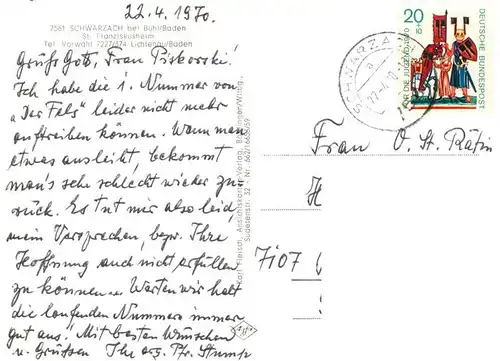 22.4.1970.
7561 SCHWARZACH bei Bühl/Baden
St. Franziskusheim
Tel. Vorwahl 7227/674 Lichtenau/Baden
Grüß Gott, Frau Piskorski!
Ich habe die 1. Nummer von
"Der Fels" leider nicht mehr
auftreiben können. Wenn man
etwas ausleiht, bekommt
man's sehr schlecht wieder zu-
rück. Es tut mir also leid,
mein Versprechen, bezw. Ihre
Hoffnung auch nicht erfüllen
zu können. Warten wir halt
die laufenden Nummern immer
gut aus! Mit besten Wünschen
u. Grüssen Ihr erg. Pfr. Stumpf
Karl Fleisch, Ansichtskarten-Verlag, Bühlertal-Wintig,
Sudetenstr. 32
SCHWARZA
20
+10
FÜR DIE JUGEND 1970
DEUTSCHE BUNDESPOST
Frau O. St. Rätin
H
7107